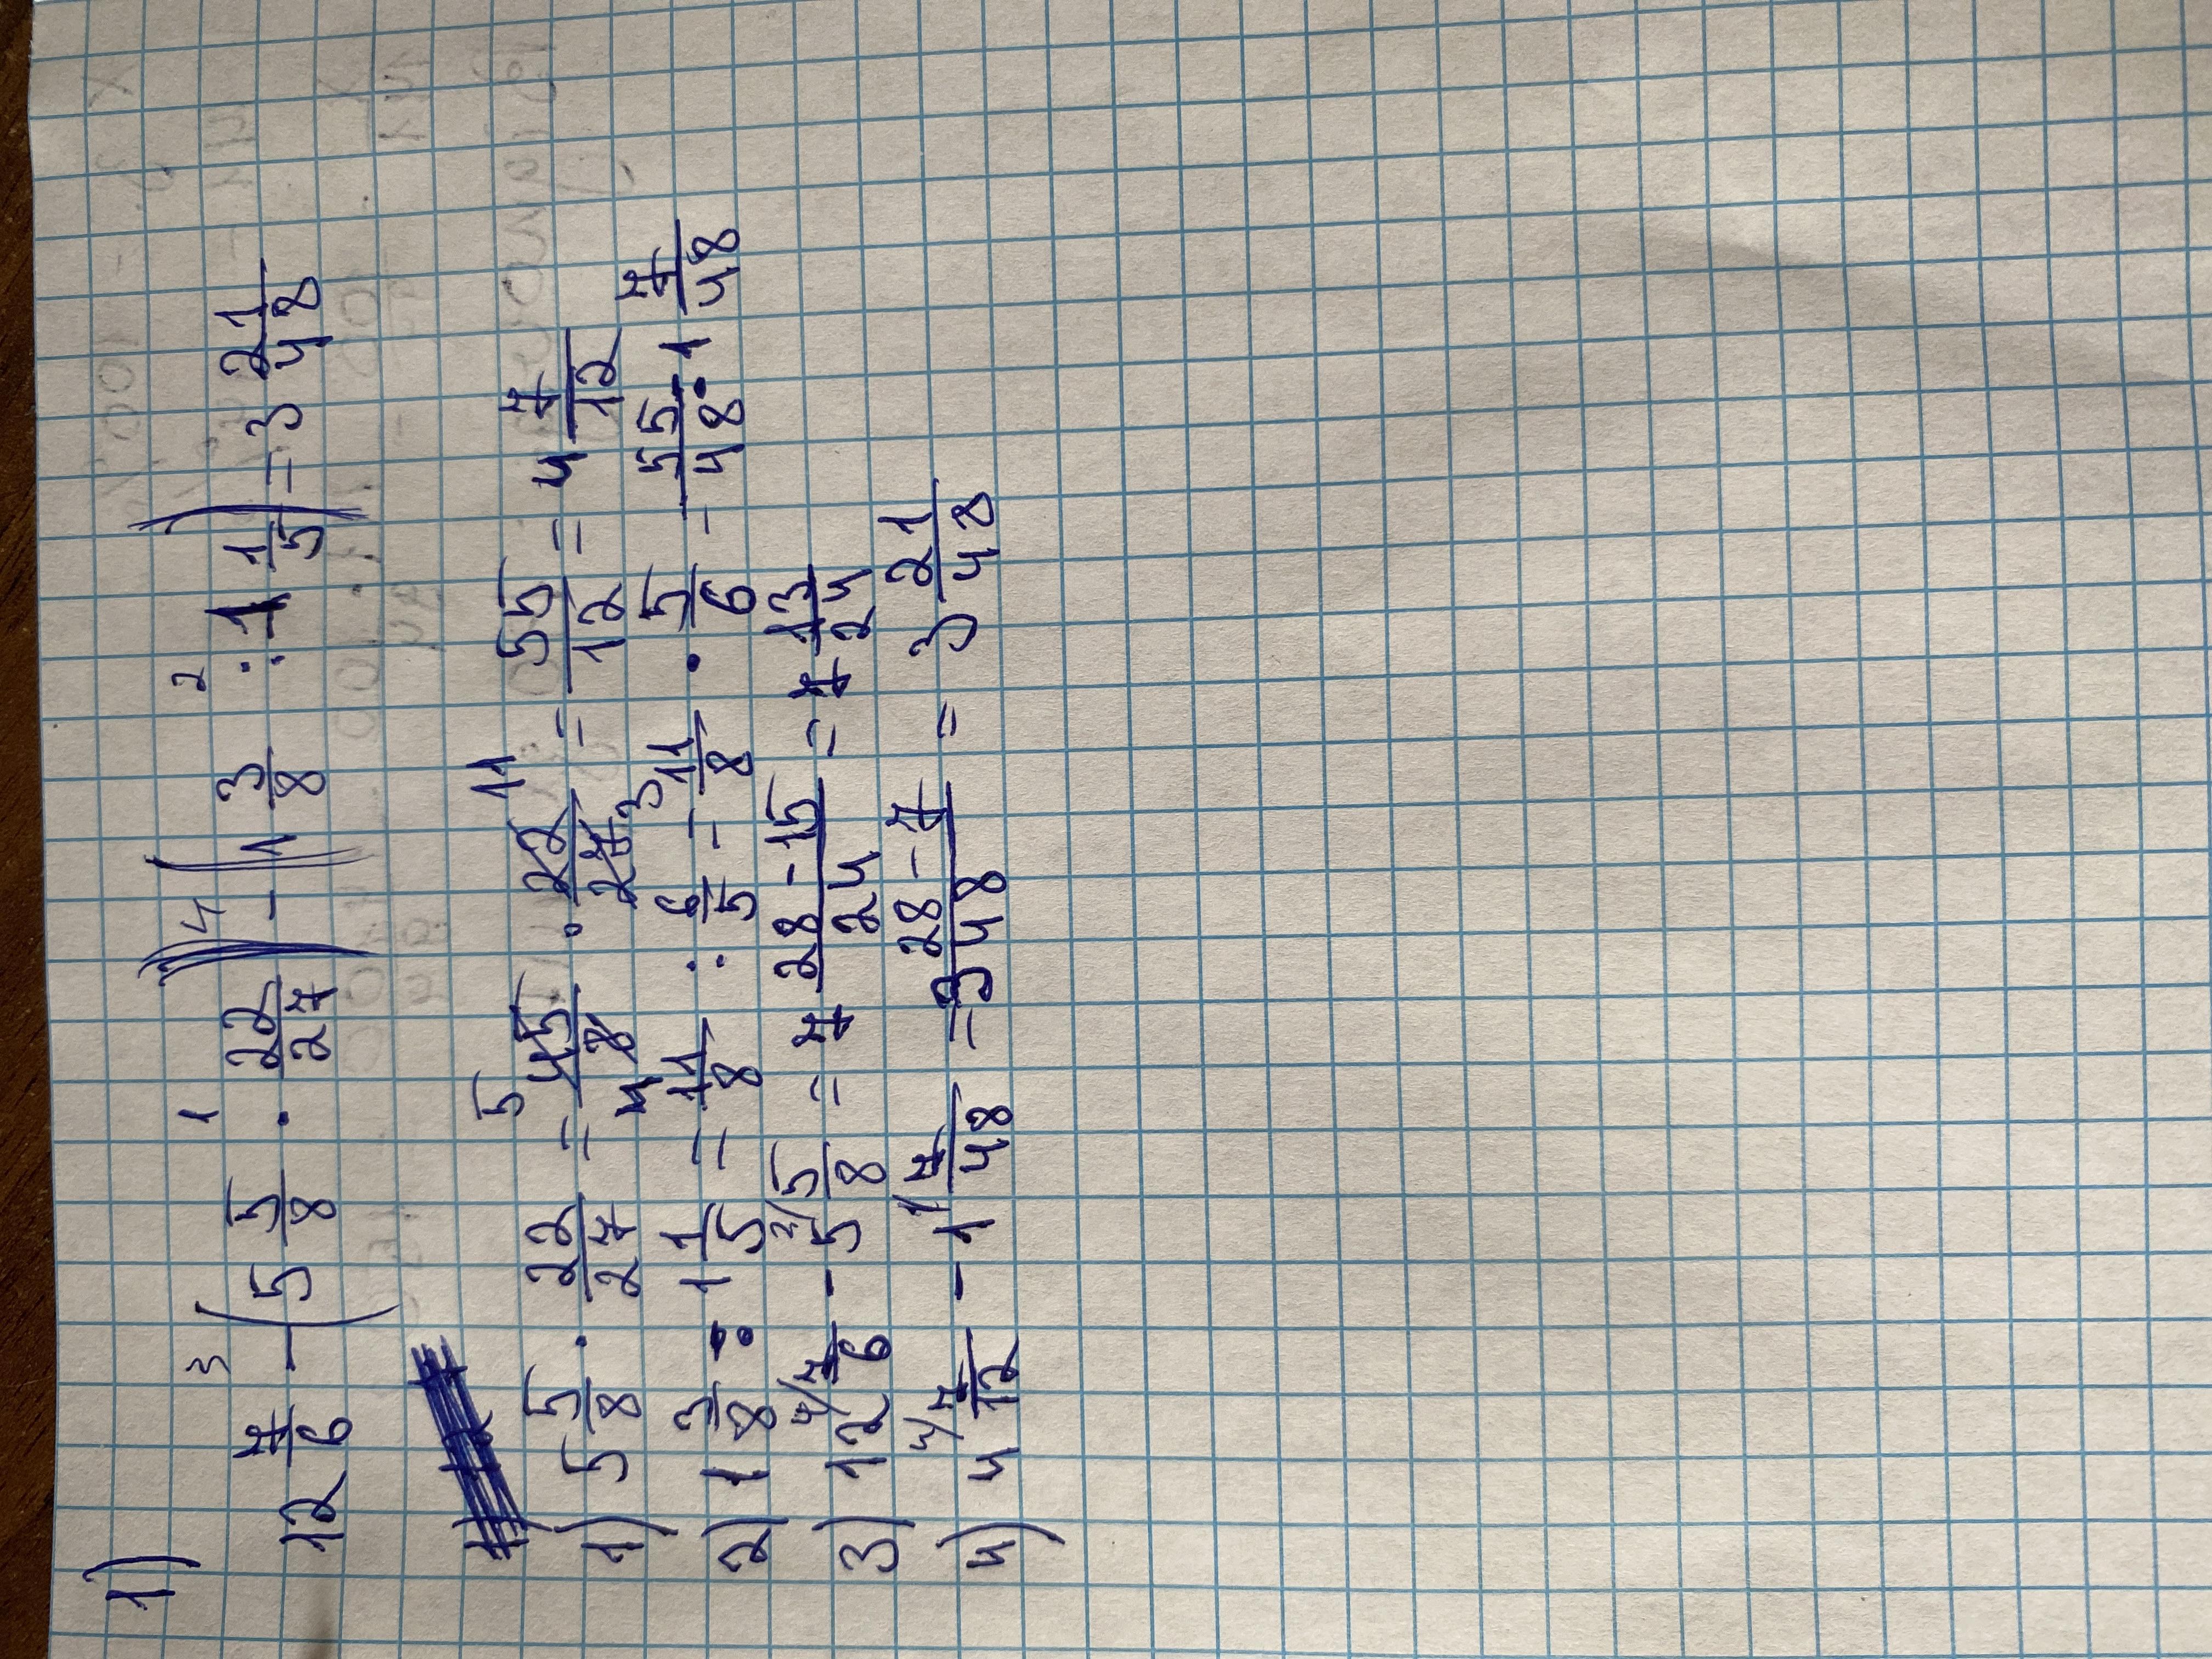 1)
12 7/6 -³ (5 5/8 ·¹ 22/27) -⁴ (1 3/8 :² 1 1/5) = 3 21/48
1) 5 5/8 · 22/27 = 45/8 · 22/27 = 55/12 = 4 7/12
2) 1 3/8 : 1 1/5 = 11/8 : 6/5 = 11/8 · 5/6 = 55/48 = 1 7/48
3) 12 7/6 - 5 5/8 = 7 28-15/24 = 7 13/24
4) 4 7/12 - 1 7/48 = 3 28-7/48 = 3 21/48